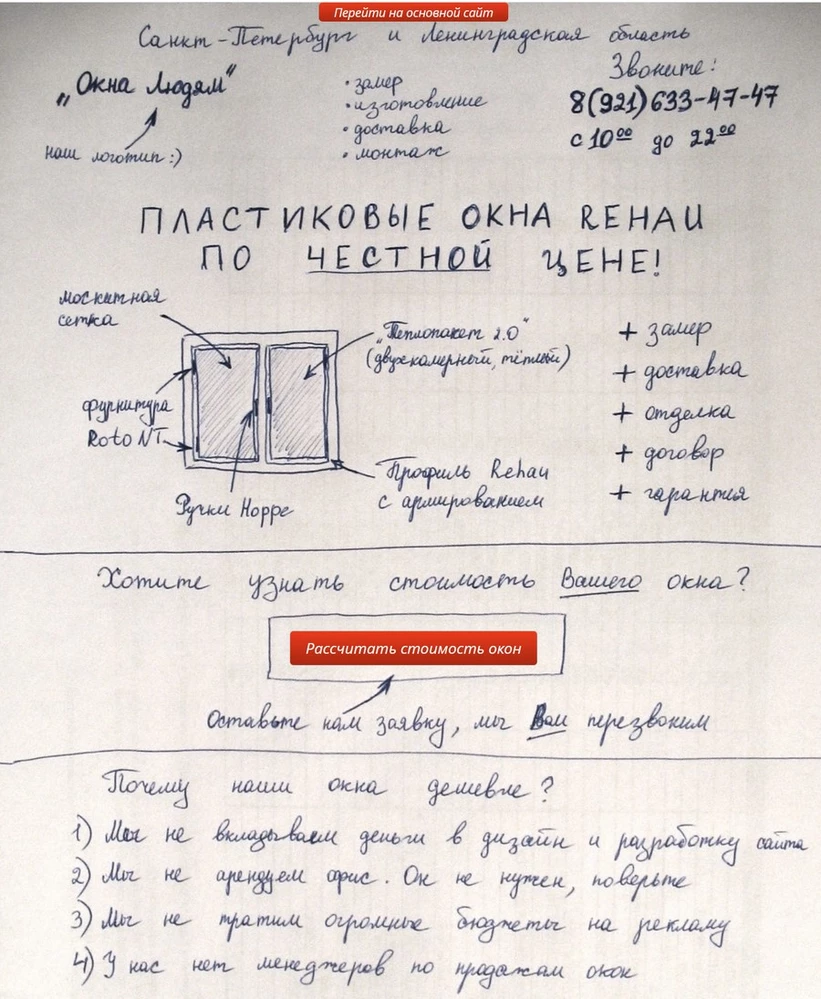 Перейти на основной сайт
Санкт-Петербург и Ленинградская область
„Окна Людям“
наш логотип :)
• замер
• изготовление
• доставка
• монтаж
Звоните:
8(921)633-47-47
с 10⁰⁰ до 22⁰⁰
ПЛАСТИКОВЫЕ ОКНА REHAU
ПО ЧЕСТНОЙ ЦЕНЕ!
москитная
сетка
фурнитура
Roto NT
Ручки Hoppe
„Теплопакет 2.0“
(двухкамерный, тёплый)
Профиль Rehau
с армированием
+ замер
+ доставка
+ отделка
+ договор
+ гарантия
Хотите узнать стоимость Вашего окна?
Рассчитать стоимость окон
Оставьте нам заявку, мы Вам перезвоним
Почему наши окна дешевле?
1) Мы не вкладываем деньги в дизайн и разработку сайта
2) Мы не арендуем офис. Он не нужен, поверьте
3) Мы не тратим огромные бюджеты на рекламу
4) У нас нет менеджеров по продажам окон